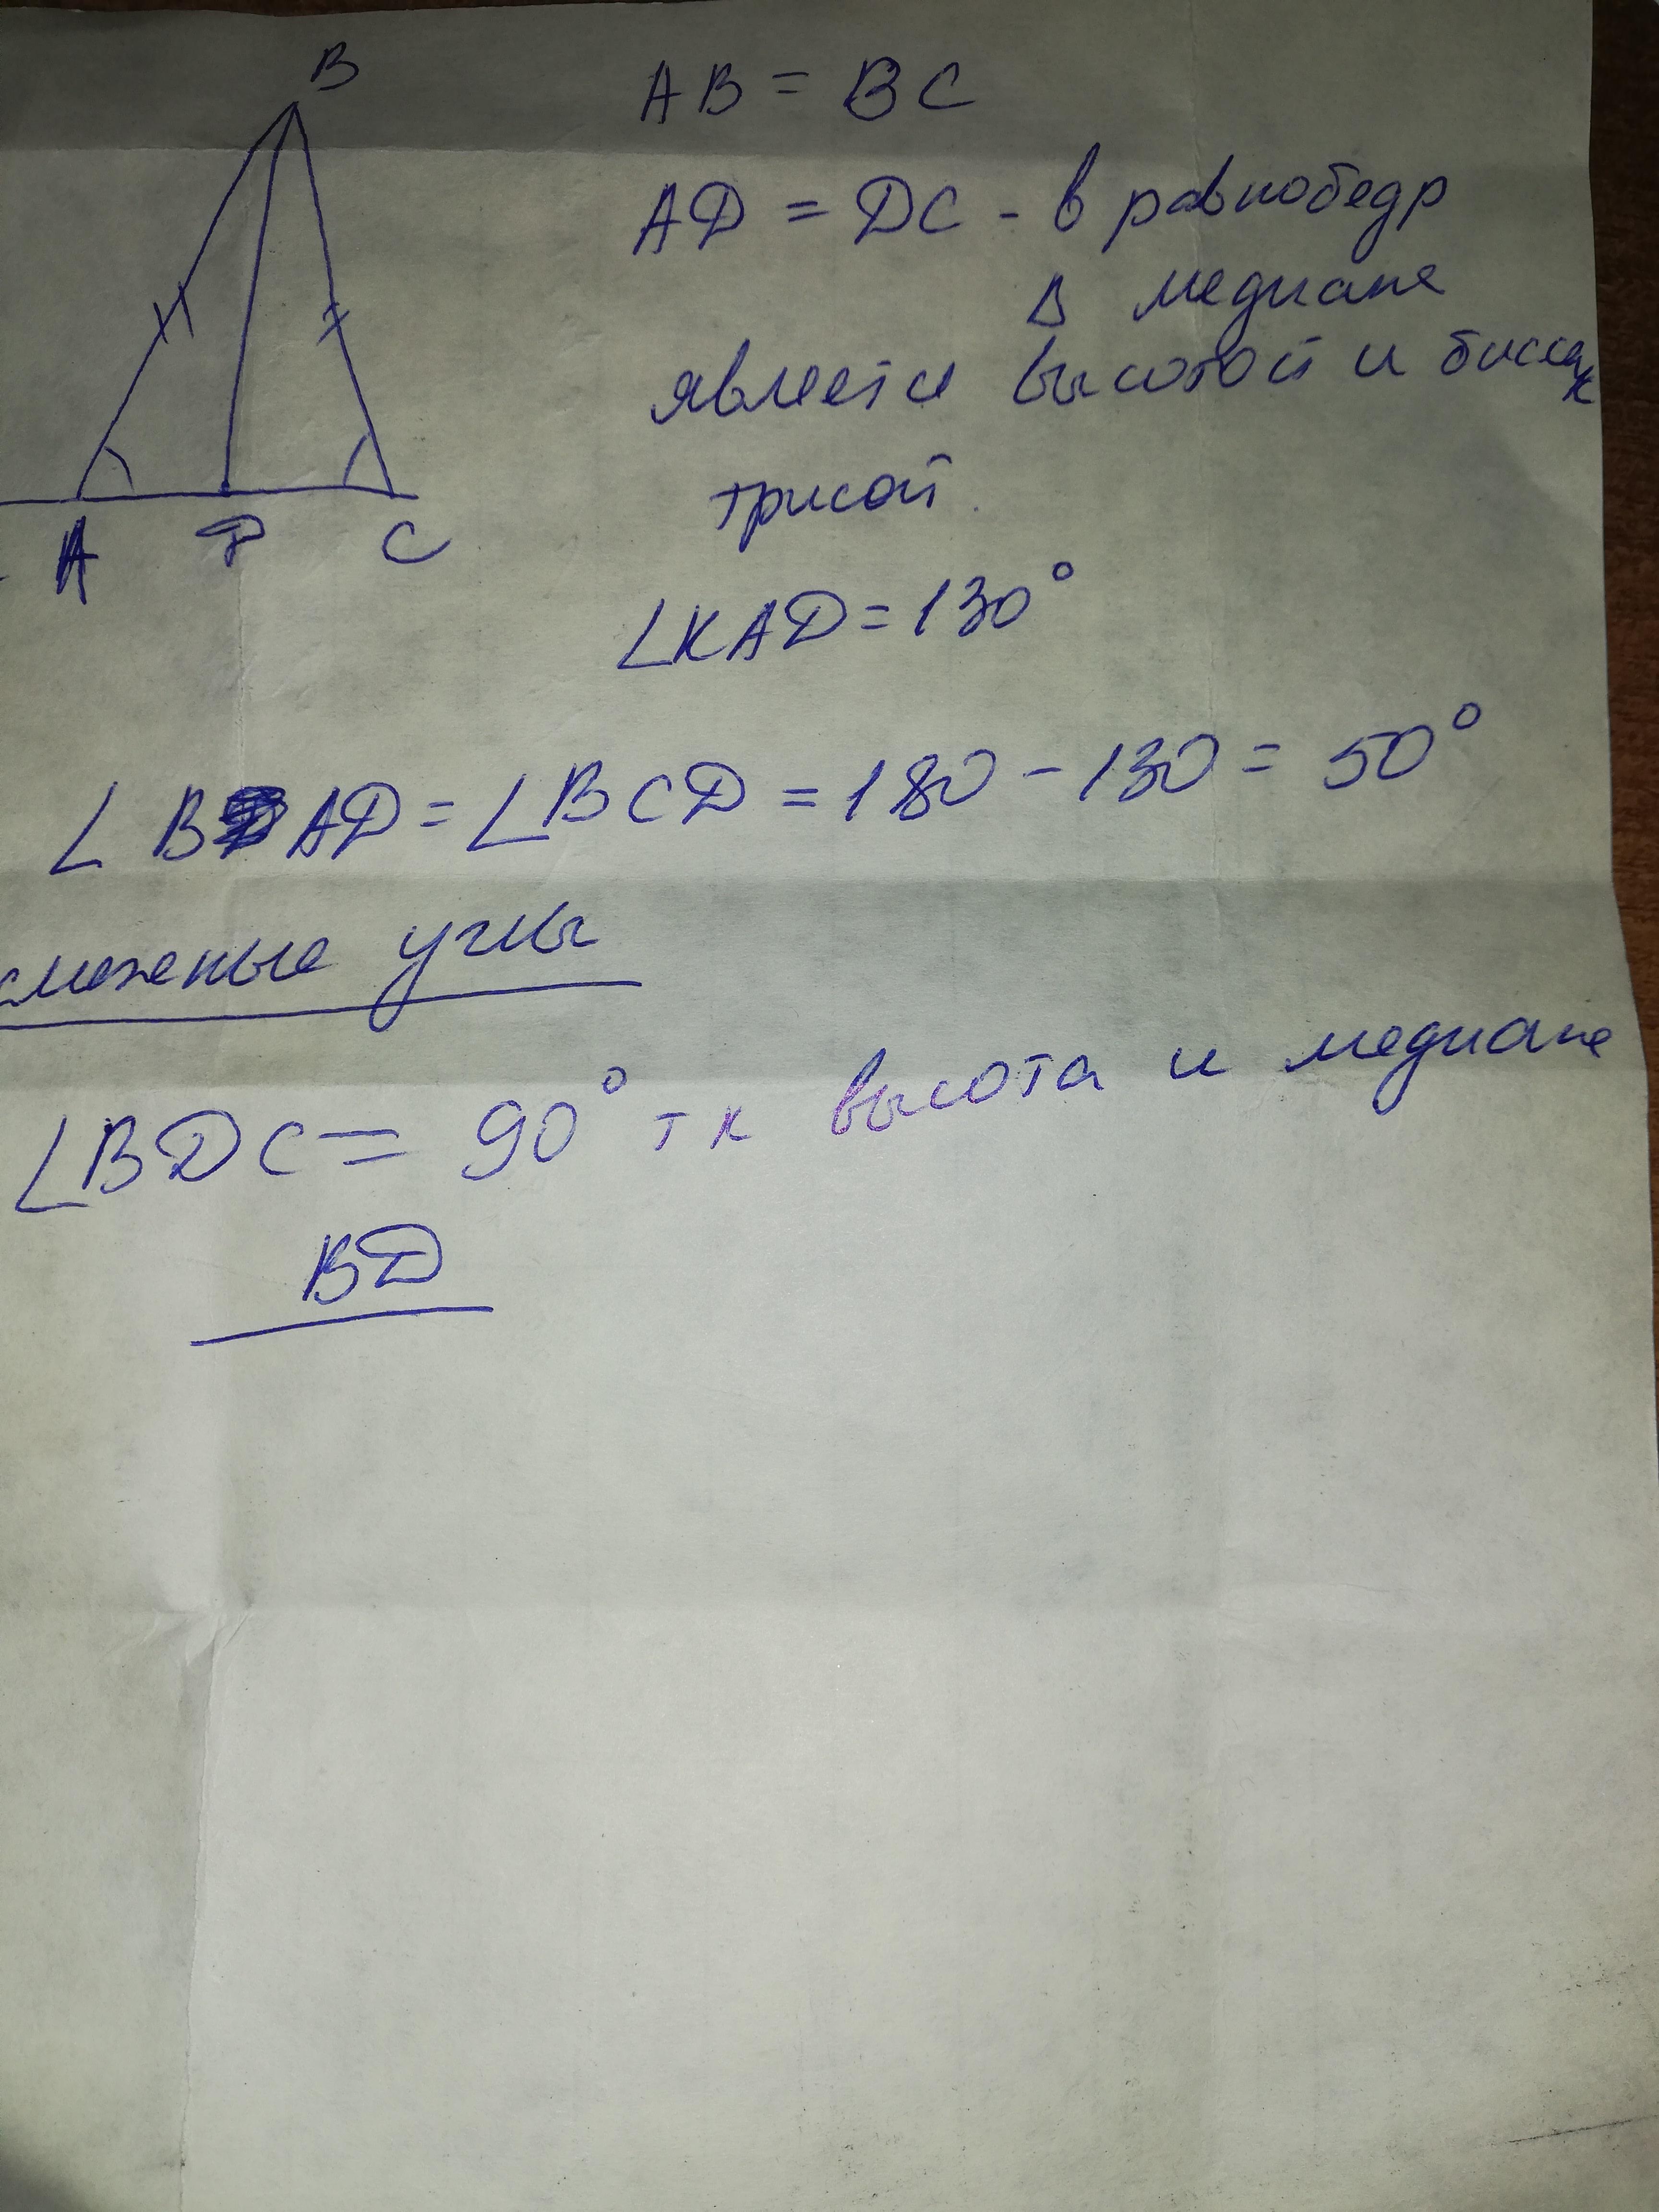 B
AB = BC
AD = DC - в равнобедр
Δ медиане
является высотой и биссек
трисой.
A D C
∠KAD = 130°
∠BAD = ∠BCD = 180 - 130 = 50°
смежные углы
∠BDC = 90° тк высота и медиане
BD